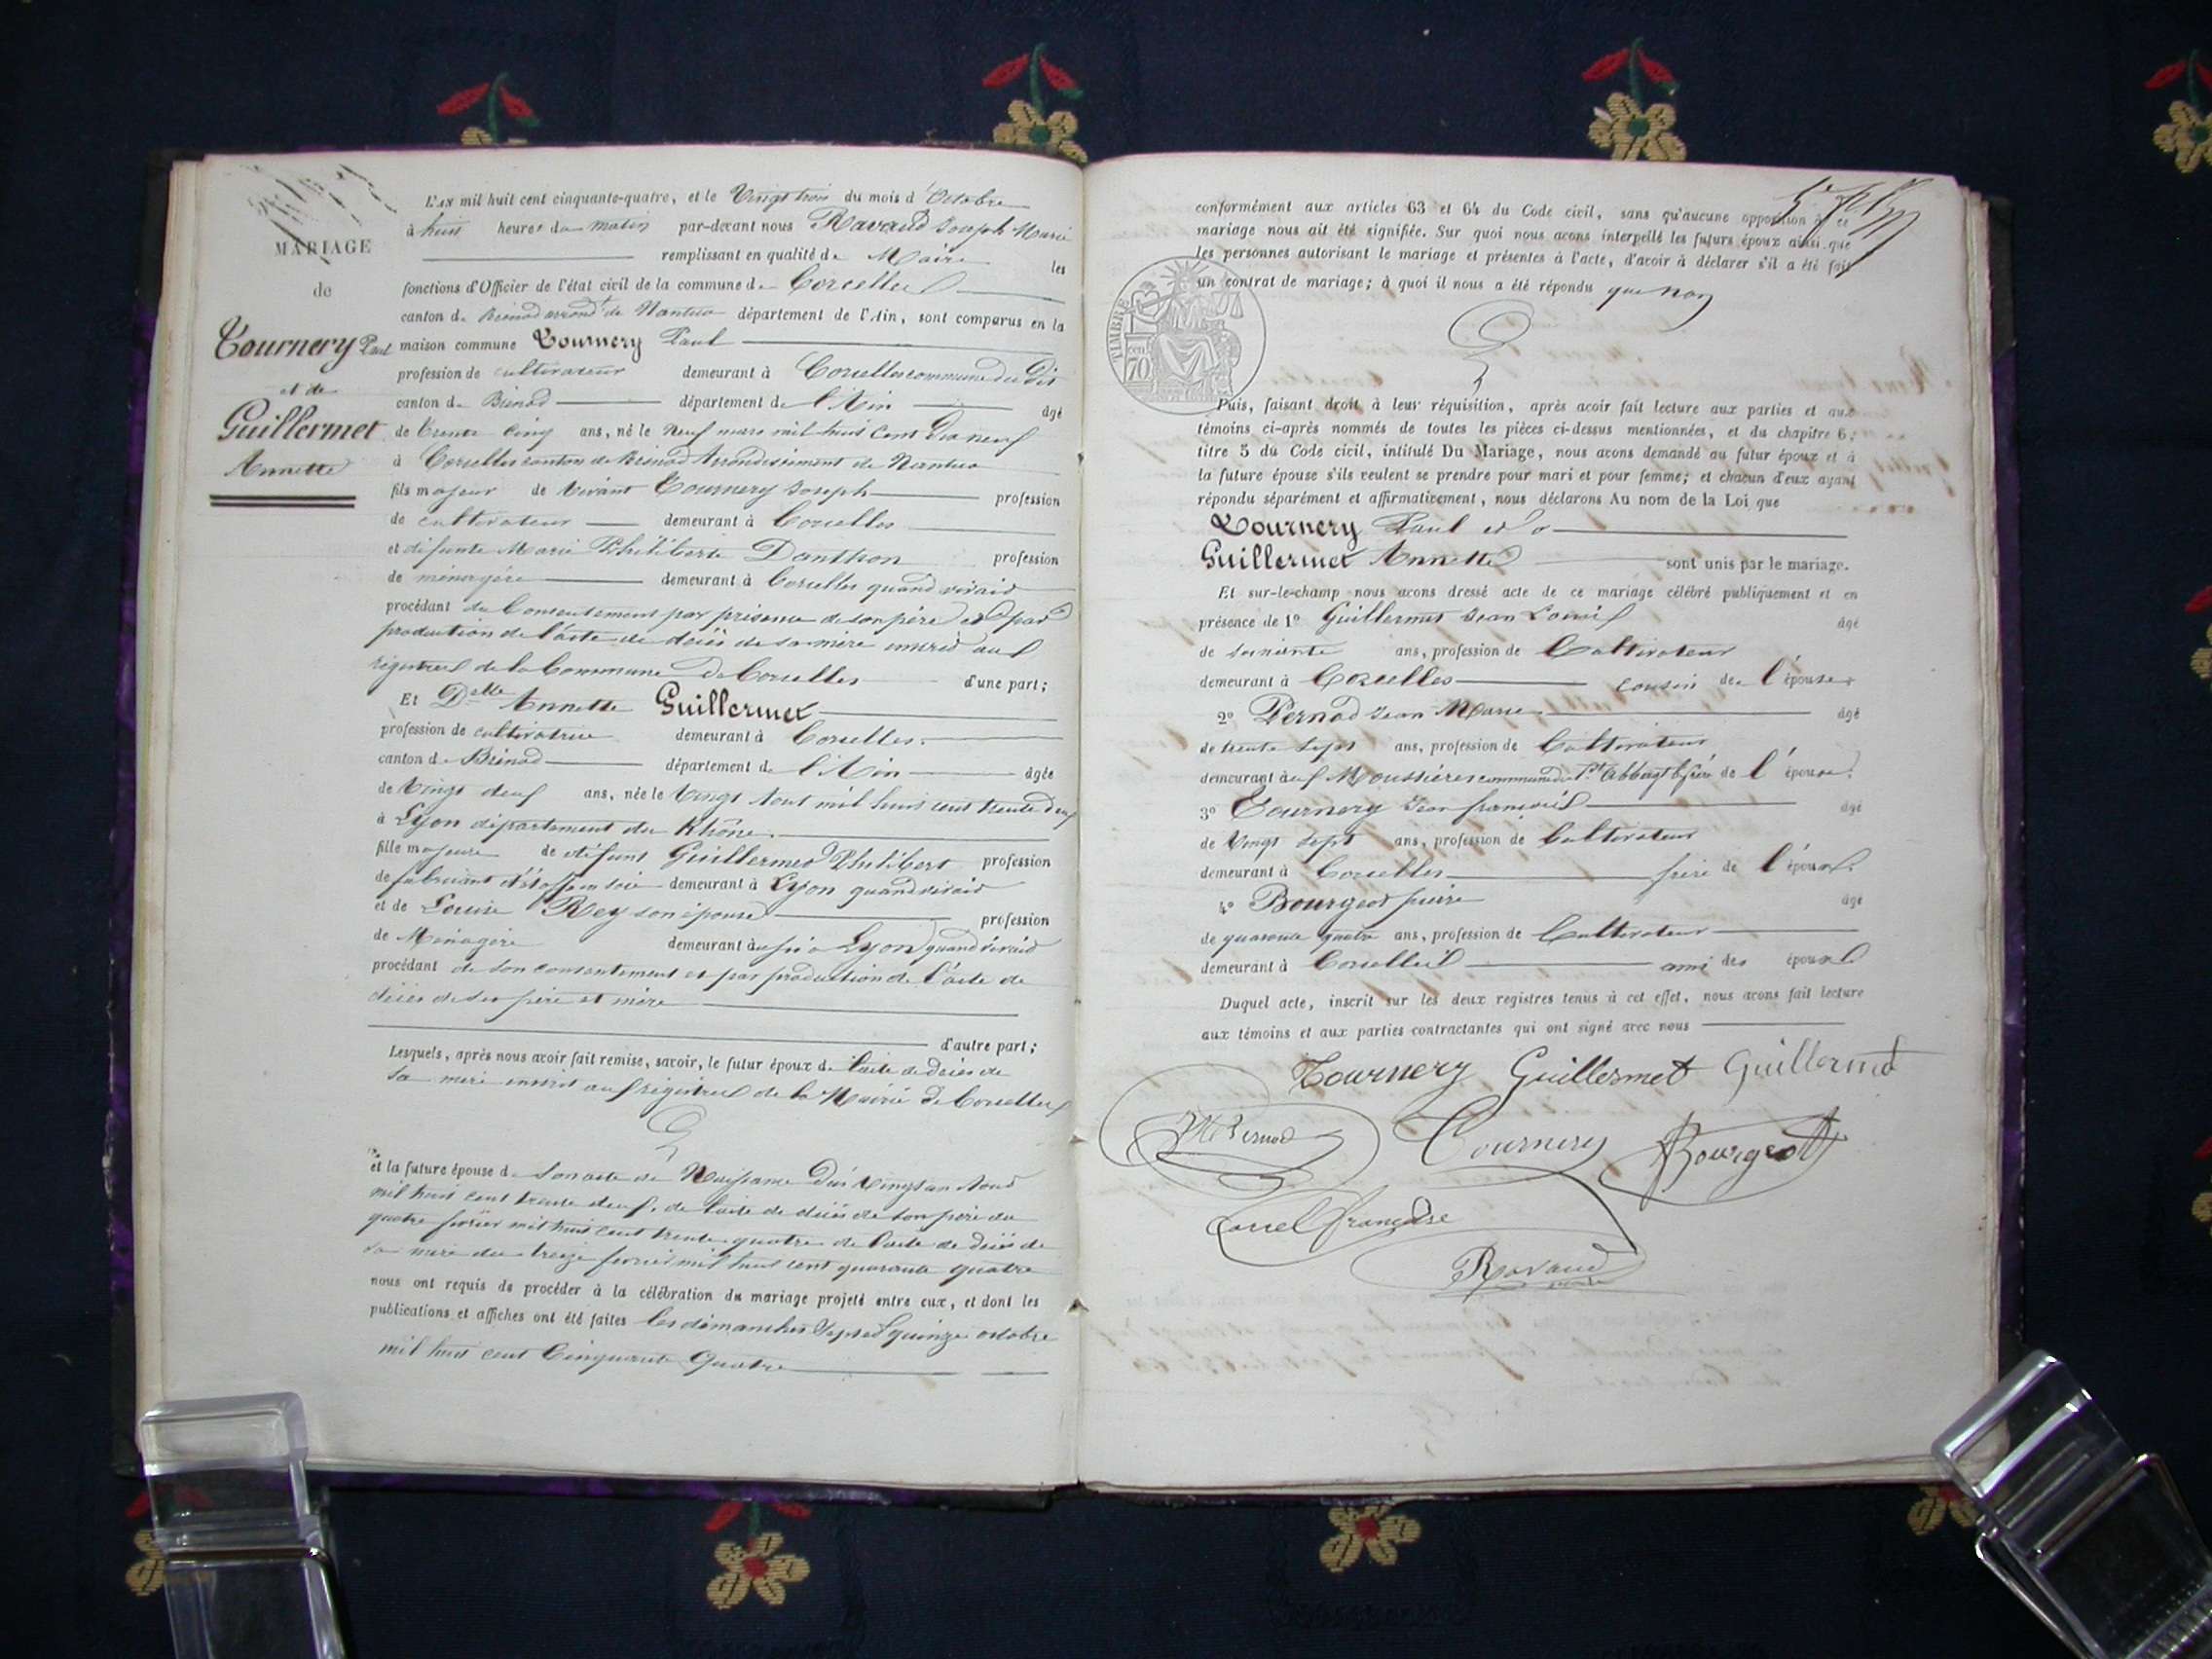 MARIAGE
de
Tournery Paul
et de
Guillermet
Annette
L'AN mil huit cent cinquante-quatre, et le Vingt trois du mois d'Octobre
à huit heures du matin par-devant nous Ravaud Joseph Marie
remplissant en qualité de Maire les
fonctions d'Officier de l'état civil de la commune de Corcelles
canton de Brénod arrondt de Nantua département de l'Ain, sont comparus en la
maison commune Tournery Paul
profession de cultivateur demeurant à Corcelles commune du dit
canton de Brénod département de l'Ain âgé
de trente cinq ans, né le neuf mars mil huit cent dix neuf
à Corcelles canton de Brénod Arrondissement de Nantua
fils majeur de vivant Tournery Joseph profession
de cultivateur demeurant à Corcelles
et défunte Marie Philiberte Danthon profession
de ménagère demeurant à Corcelles quand vivait
procédant du Consentement par présence de son père et par
production de l'acte de décès de sa mère inscrit aux
registres de la Commune de Corcelles d'une part;
Et Delle Annette Guillermet
profession de cultivatrice demeurant à Corcelles
canton de Brénod département de l'Ain âgée
de Vingt deux ans, née le Vingt Aout mil huit cent trente deux
à Lyon département du Rhône.
fille majeure de défunt Guillermet Philibert profession
de fabricant d'étoffe en soie demeurant à Lyon quand vivait
et de Louise Rey son épouse profession
de Ménagère demeurant aussi à Lyon quand vivait
procédant de son consentement et par production de l'acte de
décès de ses père et mère
d'autre part;
Lesquels, après nous avoir fait remise, savoir, le futur époux de l'acte de décès de
sa mère inscrit aux registres de la Mairie de Corcelles
et la future épouse de son acte de Naissance du Vingt un Aout
mil huit cent trente deux, de l'acte de décès de son père du
quatre février mil huit cent trente quatre de l'acte de décès de
sa mère du treize février mil huit cent quarante quatre
nous ont requis de procéder à la célébration du mariage projeté entre eux, et dont les
publications et affiches ont été faites les dimanches sept et quinze octobre
mil huit cent Cinquante Quatre
conformément aux articles 63 et 64 du Code civil, sans qu'aucune opposition à ce
mariage nous ait été signifiée. Sur quoi nous avons interpellé les futurs époux ainsi que
les personnes autorisant le mariage et présentes à l'acte, d'avoir à déclarer s'il a été fait
un contrat de mariage; à quoi il nous a été répondu que non
TIMBRE
70 cent
Puis, faisant droit à leur réquisition, après avoir fait lecture aux parties et aux
témoins ci-après nommés de toutes les pièces ci-dessus mentionnées, et du chapitre 6,
titre 5 du Code civil, intitulé Du Mariage, nous avons demandé au futur époux et à
la future épouse s'ils veulent se prendre pour mari et pour femme; et chacun d'eux ayant
répondu séparément et affirmativement, nous déclarons Au nom de la Loi que
Tournery Paul et
Guillermet Annette sont unis par le mariage.
Et sur-le-champ nous avons dressé acte de ce mariage célébré publiquement et en
présence de 1° Guillermet Jean Louis âgé
de soixante ans, profession de Cultivateur
demeurant à Corcelles cousin de l'épouse
2° Pernod Jean Marie âgé
de trente sept ans, profession de Cultivateur
demeurant aux Moussières commune du Pt Abbergt b. frère de l'époux.
3° Tournery Jean françois âgé
de Vingt sept ans, profession de Cultivateur
demeurant à Corcelles frère de l'époux.
4° Bourgeot pierre âgé
de quarante quatre ans, profession de Cultivateur
demeurant à Corcelles ami des époux
Duquel acte, inscrit sur les deux registres tenus à cet effet, nous avons fait lecture
aux témoins et aux parties contractantes qui ont signé avec nous
Tournery Guillermet Guillermet
JM Pernod Tournery Bourgeot
françoise
Ravaud